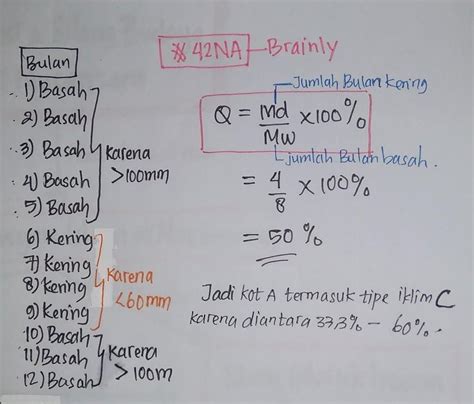 ※ 42NA Brainly
Bulan
1) Basah
2) Basah
3) Basah
4) Basah
5) Basah
Karena
>100mm
6) Kering
7) Kering
8) Kering
9) Kering
Karena
<60mm
10) Basah
11) Basah
12) Basah
Karena
>100m
Jumlah Bulan kering
Q = Md/Mw x100%
jumlah Bulan basah.
= 4/8 x 100%
= 50 %
Jadi kot A termasuk tipe iklim C
karena diantara 33,3% – 60%.